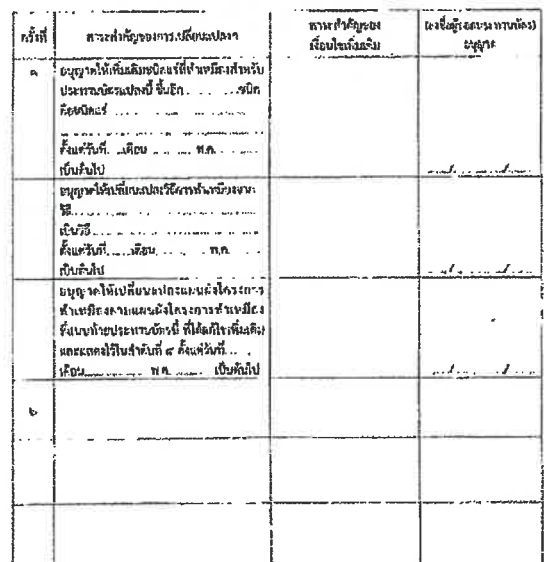 ครั้งที่
สาระสำคัญของการเปลี่ยนแปลง
สาระสำคัญของ
เงื่อนไขเพิ่มเติม
ลงชื่อผู้ออกประทานบัตร
อนุญาต
๑
อนุญาตให้เพิ่มเติมชนิดแร่ที่ทำเหมืองสำหรับ
ประทานบัตรแปลงนี้ ขึ้นอีก ........ชนิด
คือชนิดแร่ ........
ตั้งแต่วันที่......เดือน ........ พ.ศ. ........
เป็นต้นไป
อนุญาตให้เปลี่ยนแปลงวิธีการทำเหมืองจาก
วิธี........
เป็นวิธี........
ตั้งแต่วันที่......เดือน........ พ.ศ. ........
เป็นต้นไป
อนุญาตให้เปลี่ยนแปลงแผนผังโครงการ
ทำเหมืองตามแผนผังโครงการทำเหมือง
ซึ่งแนบท้ายประทานบัตรนี้ ที่ได้แก้ไขเพิ่มเติม
และแสดงไว้ในลำดับที่ ๔ ตั้งแต่วันที่....
เดือน........ พ.ศ. ........ เป็นต้นไป
๒